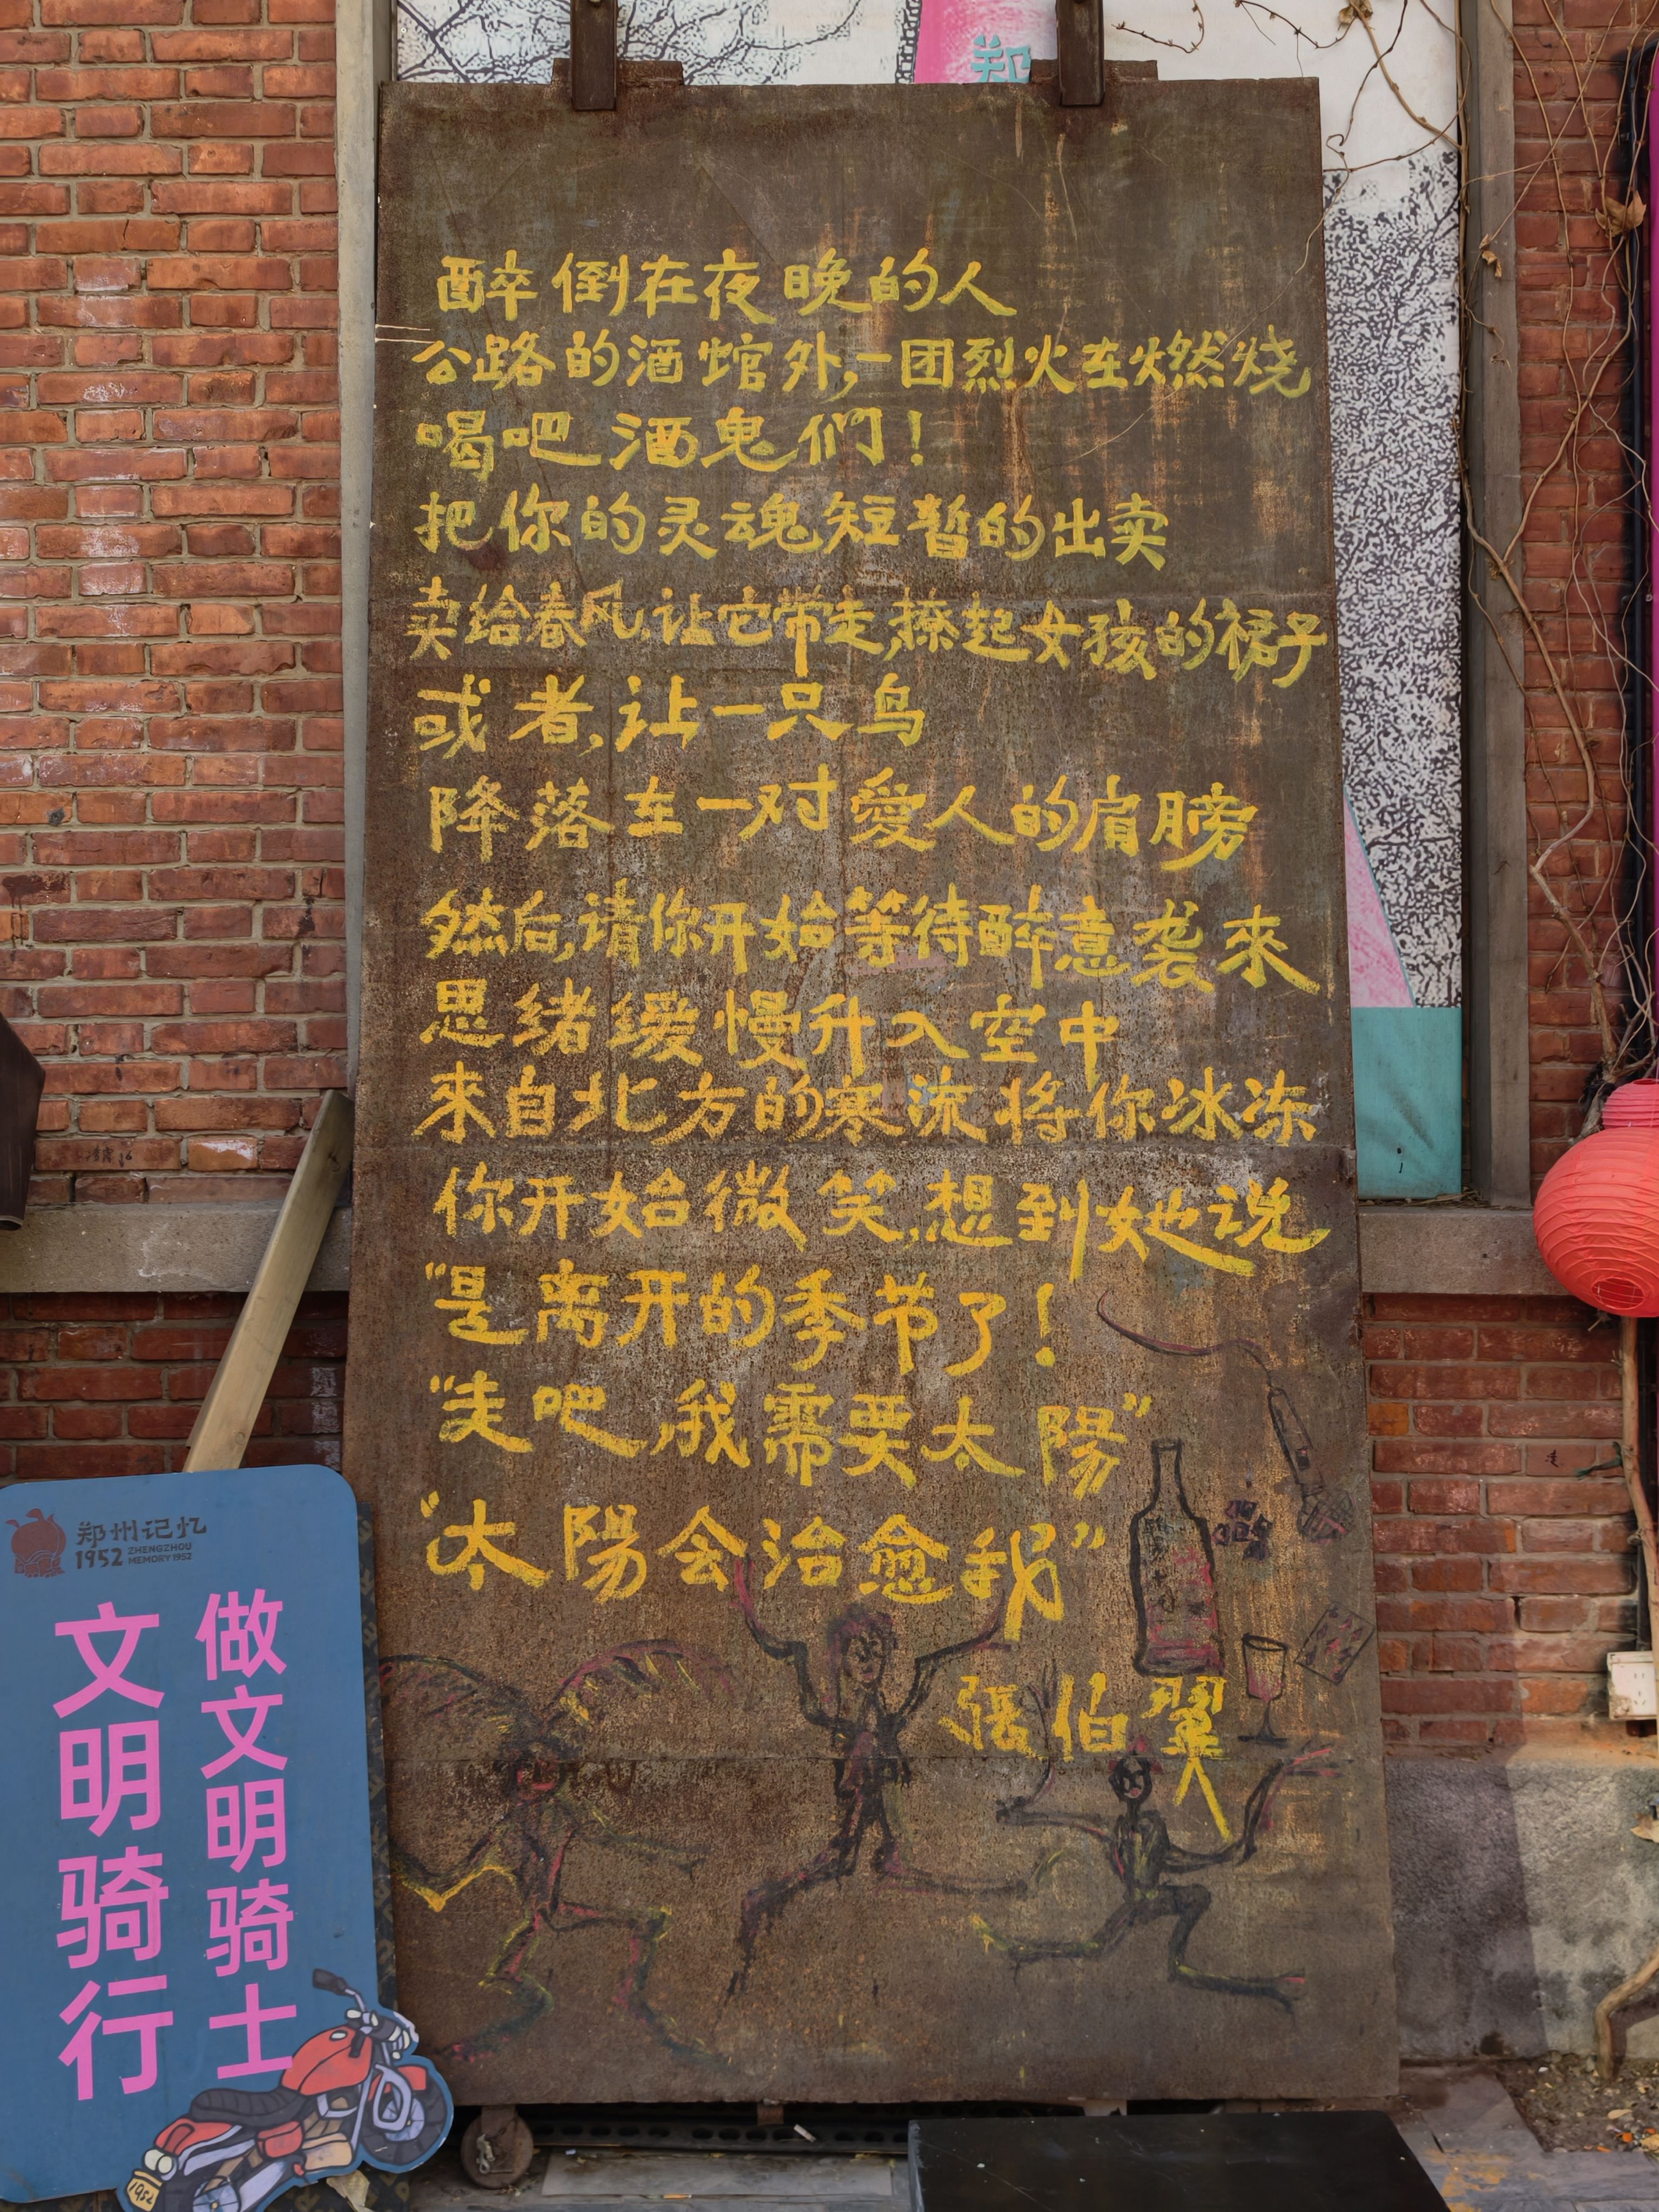 郑
醉倒在夜晚的人
公路的酒馆外,一团烈火在燃烧
喝吧酒鬼们!
把你的灵魂短暂的出卖
卖给春风,让它带走,撩起女孩的裙子
或者,让一只鸟
降落在一对愛人的肩膀
然后,请你开始等待醉意袭来
思绪缓慢升入空中
来自北方的寒流将你冰冻
你开始微笑,想到她说
"是离开的季节了!
"走吧,我需要太陽"
"太陽会治愈我"
張伯翼
郑州记忆
1952 ZHENGZHOU
MEMORY 1952
做文明骑士
文明骑行
1952